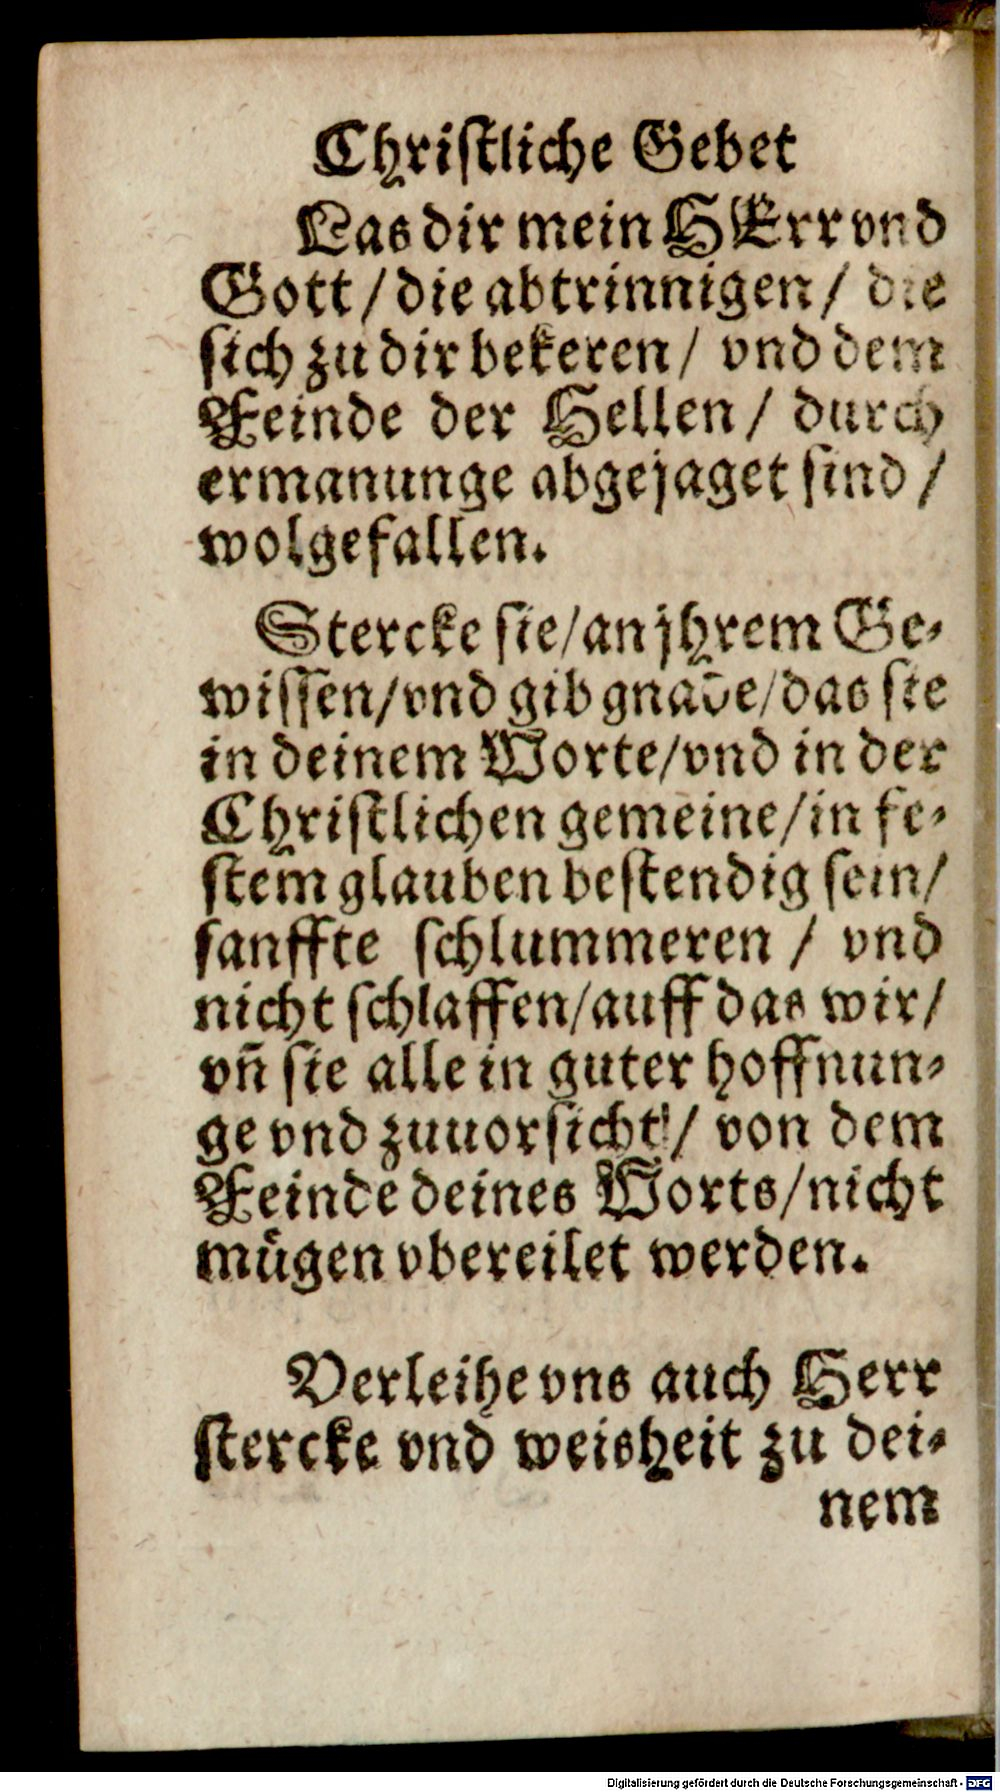 Christliche Gebet
Las dir mein HErr vnd
Gott / die abtrinnigen / die
sich zu dir bekeren / vnd dem
Feinde der Hellen / durch
ermanunge abgejaget sind /
wolgefallen.
Stercke sie/an jhrem Ge-
wissen/vnd gib gnade/das sie
in deinem Worte/vnd in der
Christlichen gemeine/in fe-
stem glauben bestendig sein/
sanffte schlummeren / vnd
nicht schlaffen/auff das wir/
vn̄ sie alle in guter hoffnun-
ge vnd zuuorsicht / von dem
Feinde deines Worts/nicht
mügen vbereilet werden.
Verleihe vns auch Herr
stercke vnd weisheit zu dei-
nem
Digitalisierung gefördert durch die Deutsche Forschungsgemeinschaft - DFG